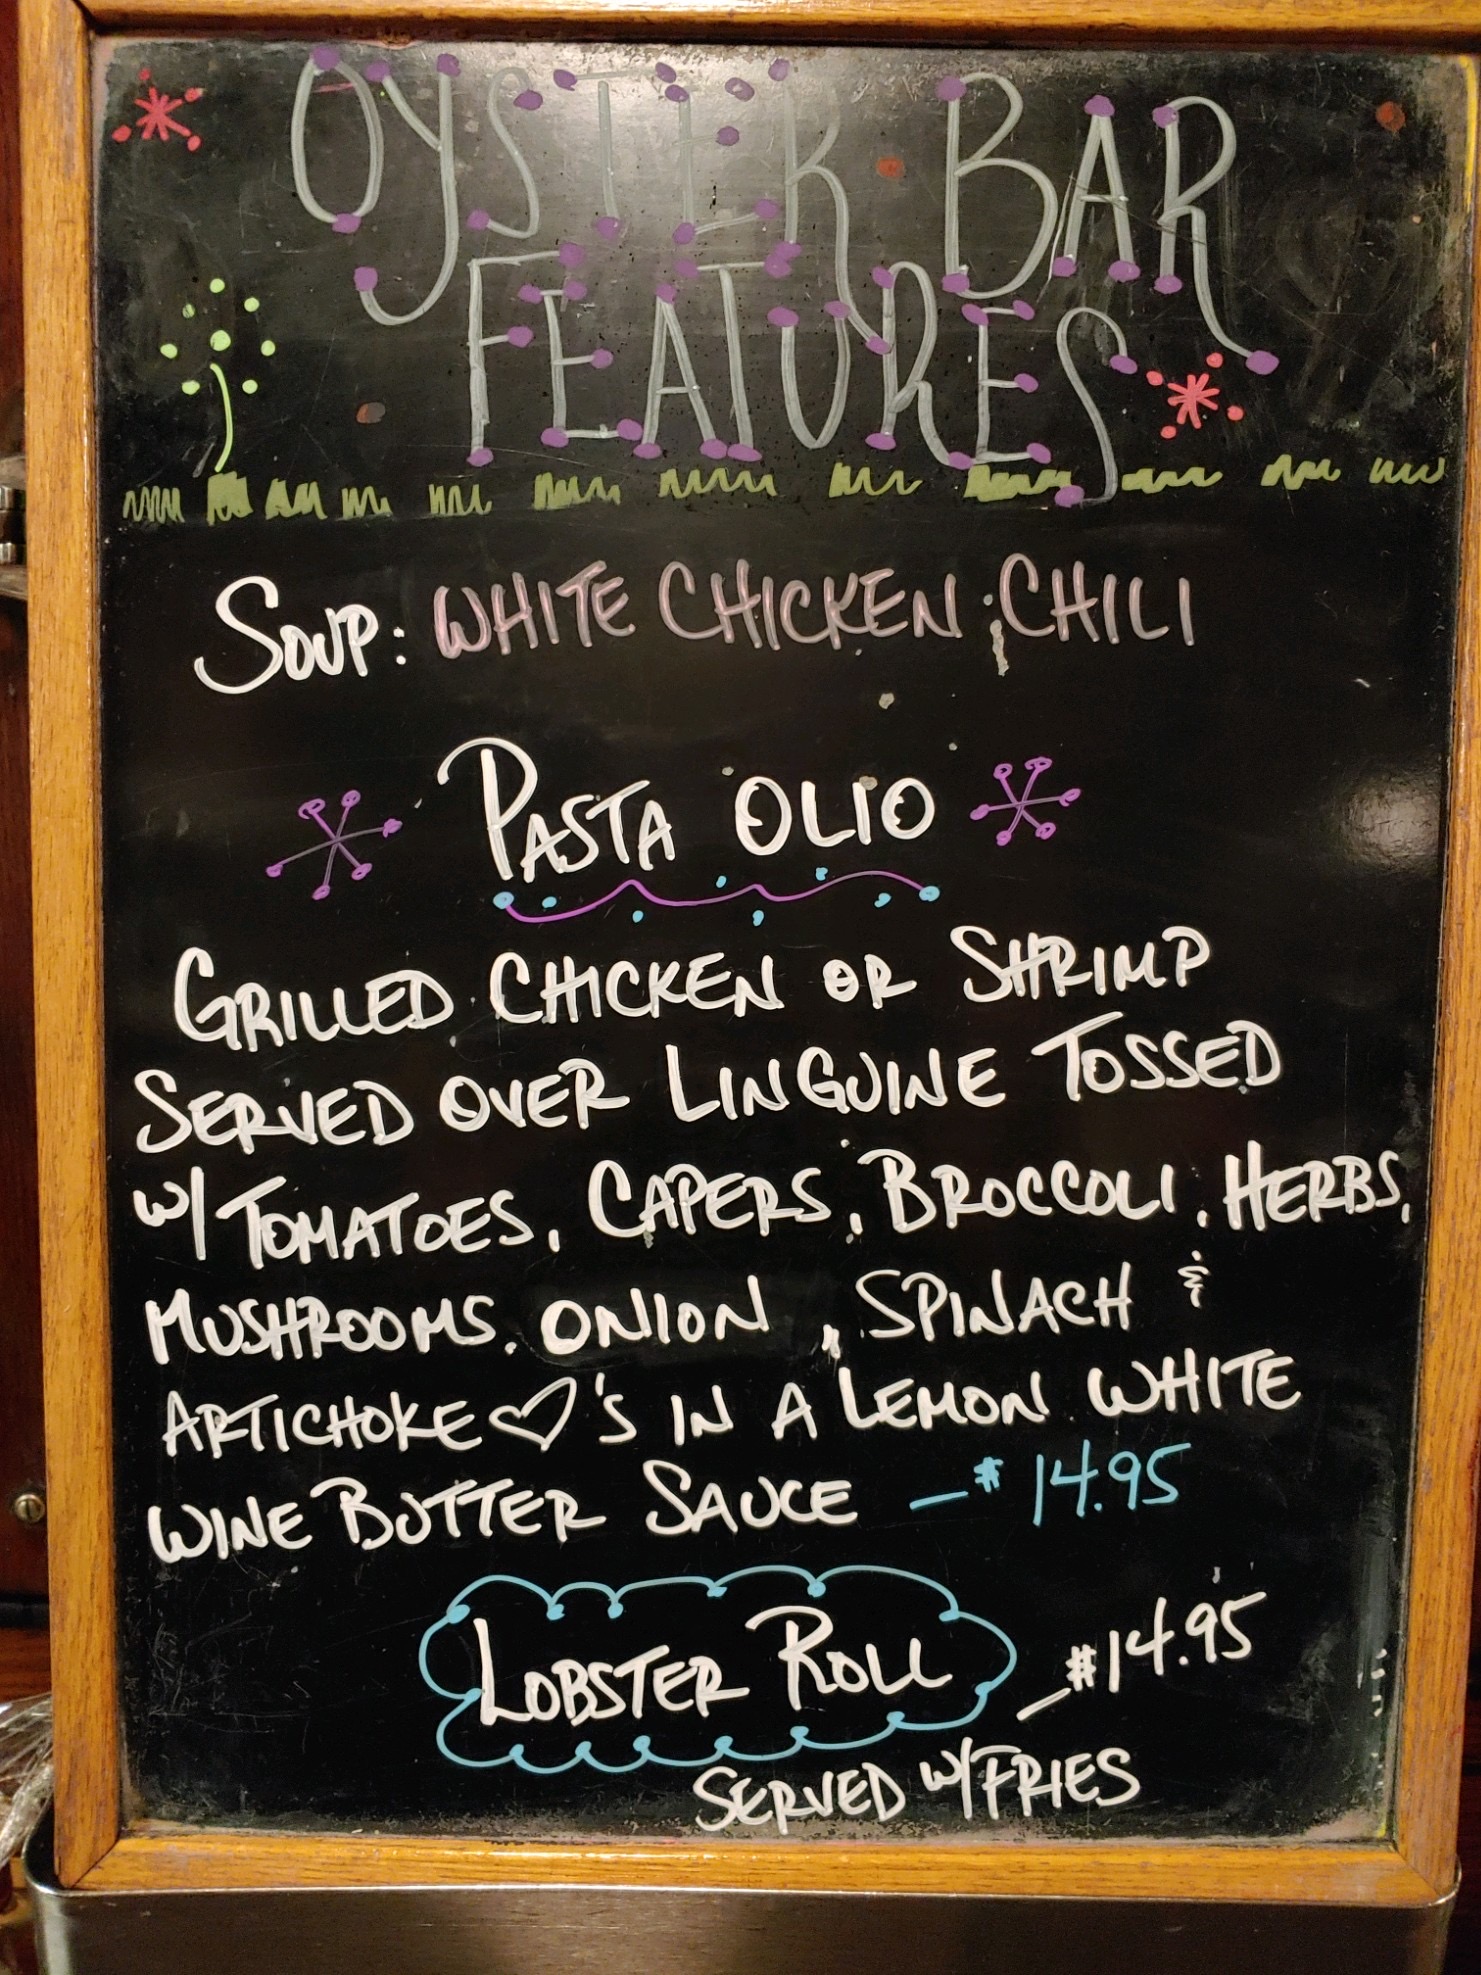 OYSTER BAR
FEATURES
SOUP: WHITE CHICKEN CHILI
PASTA OLIO
GRILLED CHICKEN OR SHRIMP
SERVED OVER LINGUINE TOSSED
W/ TOMATOES, CAPERS, BROCCOLI, HERBS,
MUSHROOMS, ONION, SPINACH &
ARTICHOKE ♡'S IN A LEMON WHITE
WINE BUTTER SAUCE — $14.95
LOBSTER ROLL — $14.95
SERVED W/ FRIES